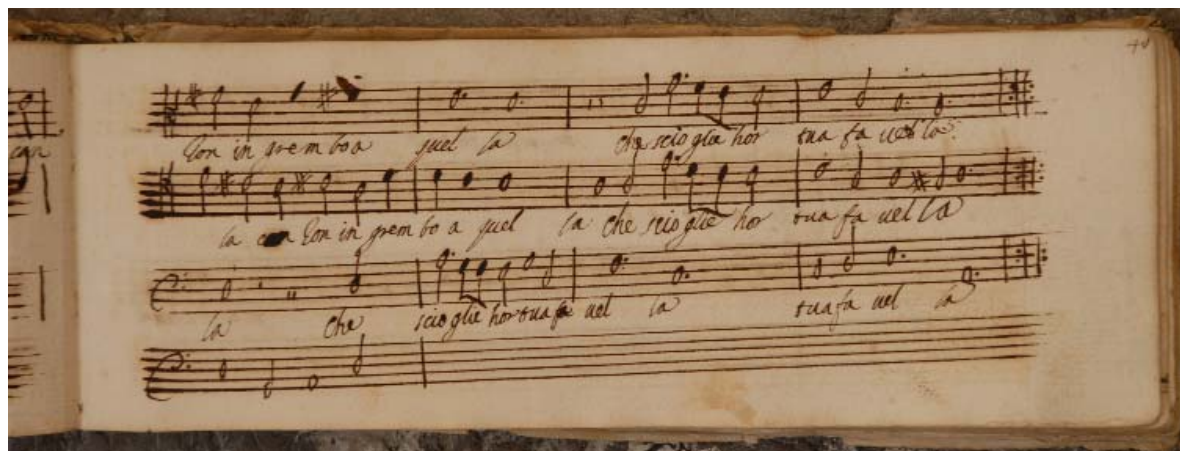 can
zon in grem bo a quel la che scio glie hor tua fa uel la
la can zon in grem bo a quel la che scio glie hor tua fa uel la
la che scio glie hor tua fa uel la tua fa uel la